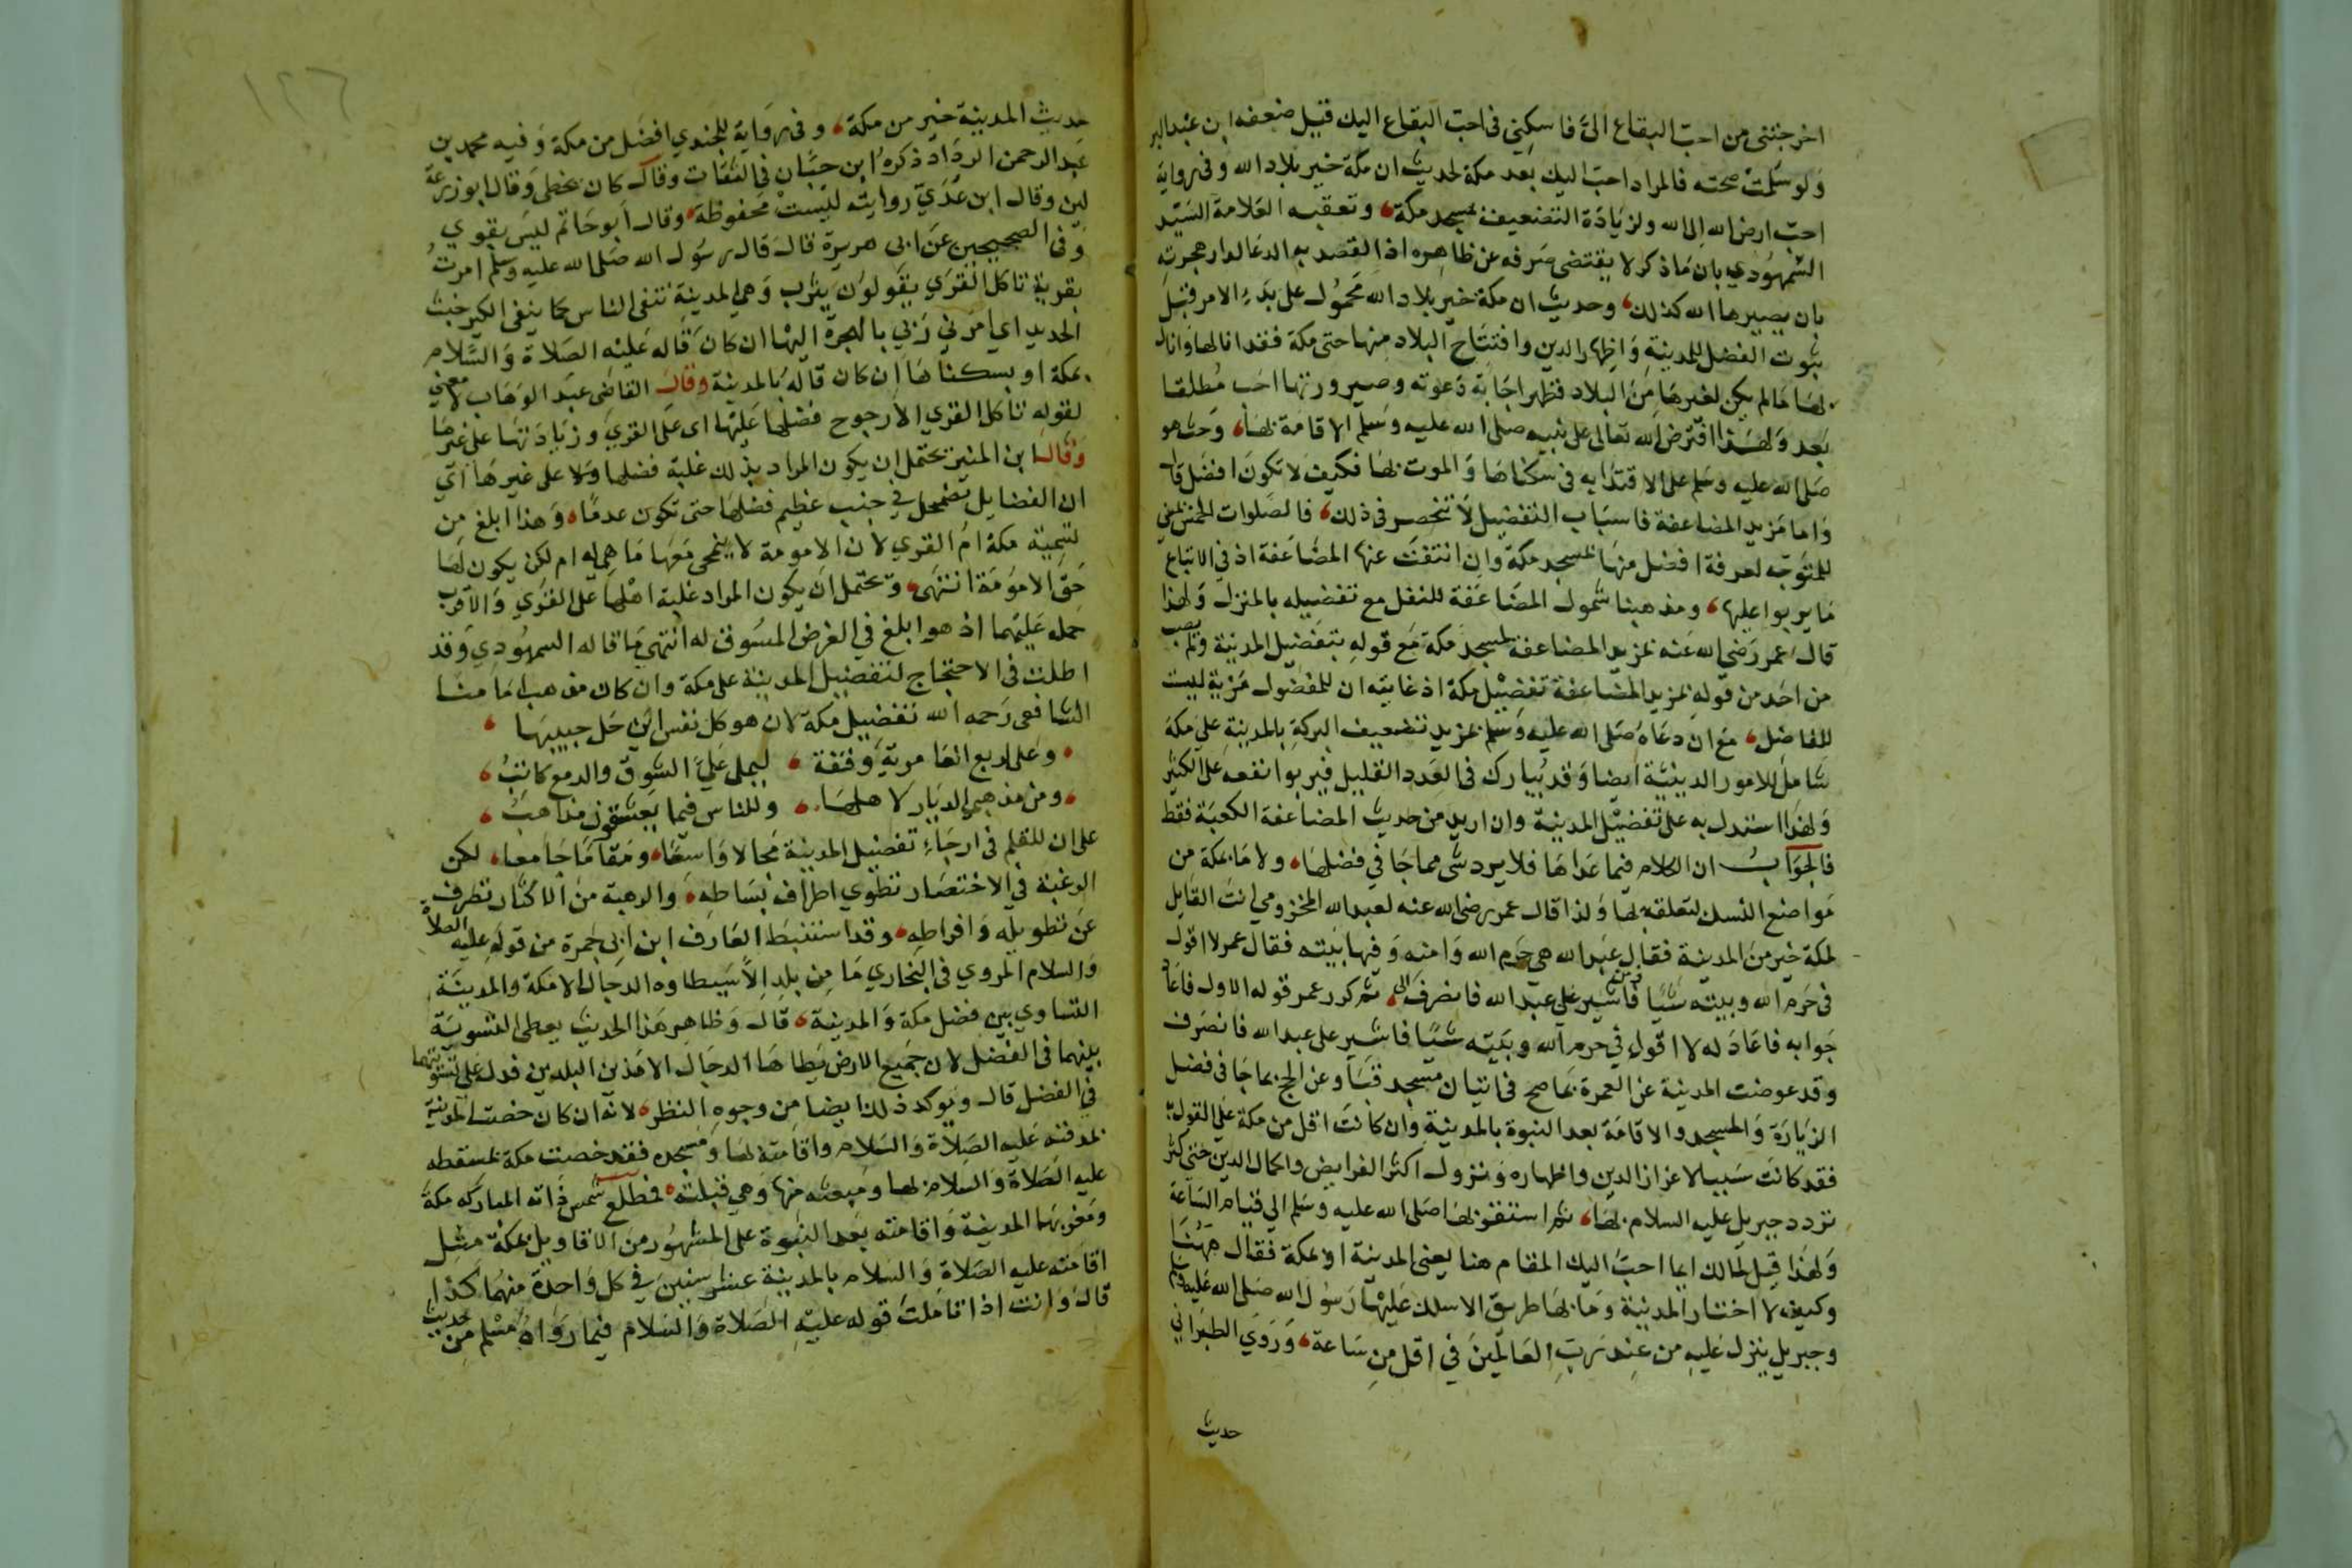 اخرجتنى من احبّ البقاع الىّ فاسكنى فى احبّ البقاع اليك قيل ضعفه ابن عبد البر
ولو سُلّمت صحته فالمراد احبّ اليك بعد مكة لحديث ان مكة خير بلاد الله وفى رواية
احبّ ارض الله الى الله ولزيادة التضعيف بمسجد مكة، وتعقبه العلامة السيد
السمهودي بان ما ذكر لا يقتضى صرفه عن ظاهره اذ القصد به الدعا لدار هجرته
بان يصيرها الله كذلك، وحديث ان مكة خير بلاد الله محمول على بدء الامر قبل
ثبوت الفضل للمدينة واظهار الدين وافتتاح البلاد منها حتى مكة فقد انالها وانال
بها مالم يكن لغيرها من البلاد فظهر اجابة دعوته وصيرورتها احب مطلقا
بعد ولهذا افترض الله تعالى على نبيه صلى الله عليه وسلم الاقامة بها، وحث هو
صلى الله عليه وسلم على الاقتدا به فى سكناها والموت بها فكيف لا تكون افضل قال
واما مزيد المضاعفة فاسباب التفضيل لا تنحصر فى ذلك، فالصلوات الخمس بمنى
للمتوجه لعرفة افضل منها بمسجد مكة وان انتفت عنها المضاعفة اذ في الاتباع
ما يربوا عليها، ومذهبنا شمول المضاعفة للنفل مع تفضيله بالمنزل ولهذا
قال عمر رضي الله عنه بمزيد المضاعفة لمسجد مكة مع قوله بتفضيل المدينة ولم يصب
من اخذ من قوله بمزيد المضاعفة تفضيل مكة اذ غايته ان للمفضول مزية ليست
للفاضل، مع ان دعاه صلى الله عليه وسلم بمزيد تضعيف البركة بالمدينة على مكة
شامل للامور الدينية ايضا وقد يبارك فى العدد القليل فيربوا نفعه على الكثير
ولهذا استدل به على تفضيل المدينة وان اريد من حديث المضاعفة الكعبة فقط
فالجواب ان الكلام فيما عداها فلا يرد شى مما جا في فضلها، ولا ما بمكة من
مواضع النسك لتعلقه بها ولذا قال عمر رضى الله عنه لعبد الله المخزومي انت القايل
لمكة خير من المدينة فقال عبد الله هى حرم الله وامنه وفيها بيته فقال عمر لا اقول
فى حرم الله وبيته شيا فاشير على عبد الله فانصرف ثم كرر عمر قوله الاول فاعاد
جوابه فاعاد له لا اقول في حرم الله وبيته شيا فاشير على عبد الله فانصرف
وقد عوضت المدينة عن العمرة بما صح فى اتيان مسجد قبا وعن الحج بما جا فى فضل
الزيارة والمسجد والاقامة بعد النبوة بالمدينة وان كانت اقل من مكة على القول به
فقد كانت سببا لاعزاز الدين واظهاره ونزول اكثر الفرايض واكمال الدين حتى كثر
تردد جبريل عليه السلام بها، ثم استقر بها صلى الله عليه وسلم الي قيام الساعة
ولهذا قيل لمالك ايما احبّ اليك المقام هنا يعنى المدينة او بمكة فقال ههنا
وكيف لا اختار المدينة وما بها طريق الا سلك عليها رسول الله صلى الله عليه وسلم
وجبريل ينزل عليه من عند ربّ العالمين في اقل من ساعة، وروي الطبراني
حديث
١٢٦
حديث المدينة خير من مكة، وفى رواية للجندي افضل من مكة وفيه محمد بن
عبد الرحمن الرداد ذكره ابن حبان فى الثقات وقال كان يخطى وقال ابو زرعة
لين وقال ابن عدي روايته ليست محفوظة، وقال ابو حاتم ليس بقوي
وفى الصحيحين عن ابى هريرة قال قال رسول الله صلى الله عليه وسلم امرت
بقرية تاكل القرى يقولون يثرب وهى المدينة تنفى الناس كما ينفى الكير خبث
الحديد اي امرني ربي بالهجرة اليها ان كان قاله عليه الصلاة والسلام
بمكة او بسكناها ان كان قاله بالمدينة وقال القاضى عبد الوهاب لا معنى
لقوله تاكل القري الا رجوح فضلها عليها اى على القرى وزيادتها على غيرها
وقال ابن المنير يحتمل ان يكون المراد بذلك غلبة فضلها على فضل غيرها اي
ان الفضايل تضمحل في جنب عظيم فضلها حتى تكون عدما، وهذا ابلغ من
تسمية مكة ام القري لان الامومة لا ينمحى معها ما هى له ام لكن يكون لها
حق الامومة انتهى، ويحتمل ان يكون المراد غلبة اهلها على القرى والاقرب
حمله عليهما اذ هو ابلغ في الغرض المسوق له انتهي ما قاله السمهودي وقد
اطلت فى الاحتجاج لتفضيل المدينة على مكة وان كان مذهب امامنا
الشافعى رحمه الله تفضيل مكة لان هوى كل نفس اين حل حبيبها،
، وعلى لربع العامرية وقفة، ليملى علىّ الشوق والدمع كاتب،
، ومن مذهبى حب الديار لاهلها، وللناس فيما يعشقون مذاهب،
على ان للقلم فى ارجاء تفضيل المدينة مجالا واسعا، ومقاما جامعا، لكن
الرغبة في الاختصار تطوي اطراف بساطه، والرهبة من الاكثار تصرف
عن تطويله وافراطه، وقد استنبط العارف ابن ابى جمرة من قوله عليه الصلاة
والسلام المروي فى البخاري ما من بلد الا سيطاوه الدجال الا مكة والمدينة
التساوي بين فضل مكة والمدينة، قال وظاهر هذا الحديث يعطى التسوية
بينهما فى الفضل لان جميع الارض يطاها الدجال الا هذين البلدين فدل على تسويتهما
في الفضل قال ويوكد ذلك ايضا من وجوه النظر، لانه ان كان خصت المدينة
بمدفنه عليه الصلاة والسلام واقامته بها ومسجده فقد خصت مكة بمسقطه
عليه الصلاة والسلام بها ومبعثه منها وهي قبلته، فمطلع شمس ذاته المباركه مكة
ومغربها المدينة واقامته بعد النبوة على المشهور من الاقاويل بمكة مثل
اقامته عليه الصلاة والسلام بالمدينة عشر سنين في كل واحدة منهما كذا
قال وانت اذا تاملت قوله عليه الصلاة والسلام فيما رواه مسلم من حديث